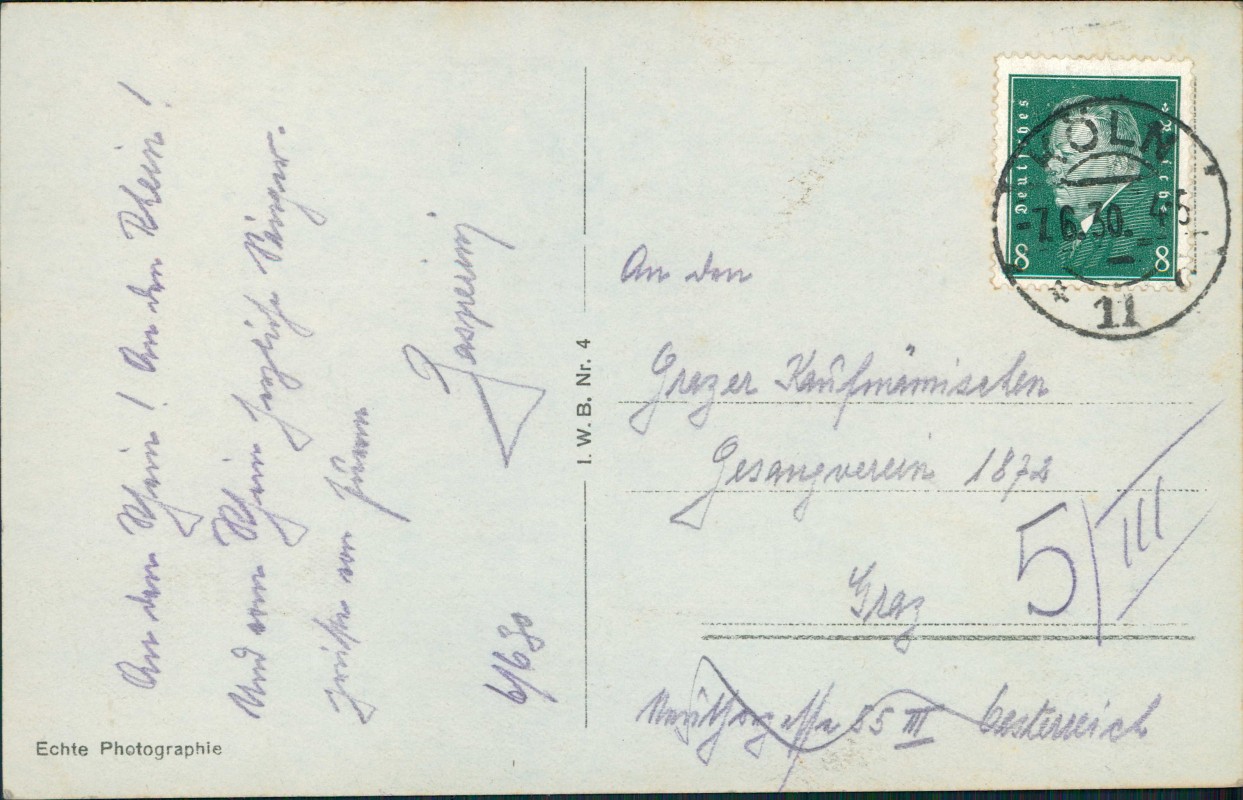 An den Rhein! An den Rhein!
Und vom Rhein herzliche Sänger-
grüße von Ihrem
6/6 30
I. W. B. Nr. 4
Echte Photographie
Deutsches Reich
8 8
KÖLN
7.6.30. 4-5
* 11 c
An den
Grazer Kaufmännischen
Gesangverein 1872
Graz
55 III Oesterreich
5/III